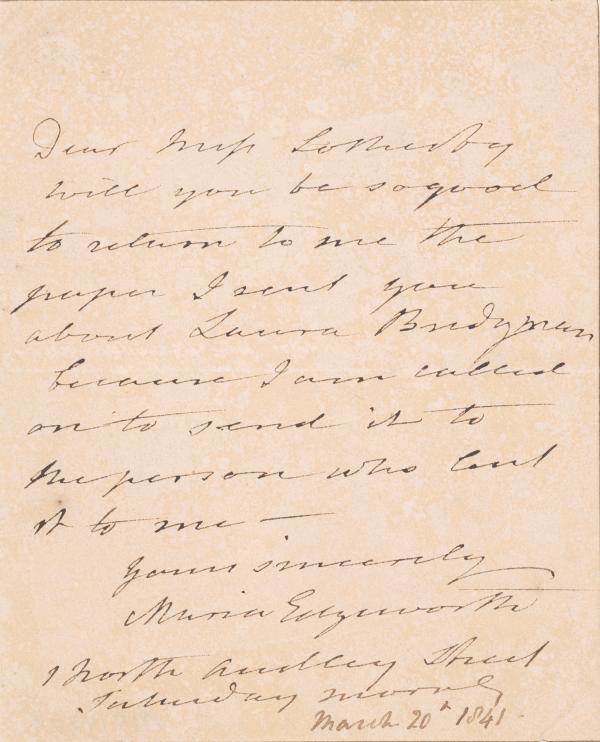 Dear Miss Sotherby
will you be so good
to return to me the
paper I sent you
about Laura Bridgman
because I am called
on to send it to
the person who lent
it to me —
Yours sincerely
Maria Edgeworth
1 North Audley Street
Saturday morng
March 20th 1841.